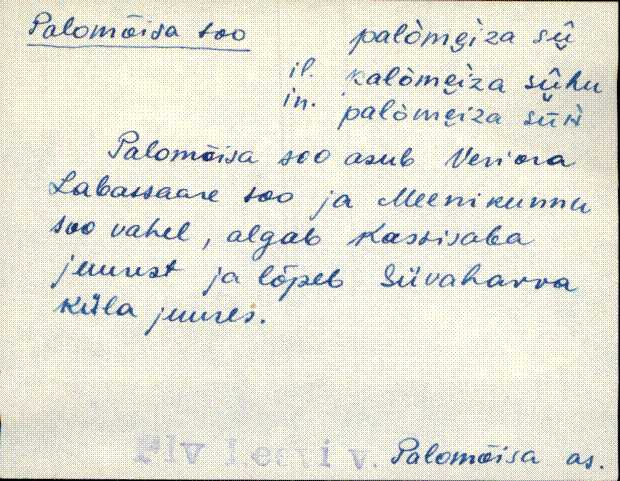 Palomõisa soo palòmẹìza sū̬
il. kalòmẹìza sū̬hu
in. palòmẹìza sūn
Palomõisa soo asub Veriora
Labassaare soo ja Meenikunnu
soo vahel, algab Kassisaba
juurest ja lõpeb Süvahavva
küla juures.
Plv Leevi v. Palomõisa as.